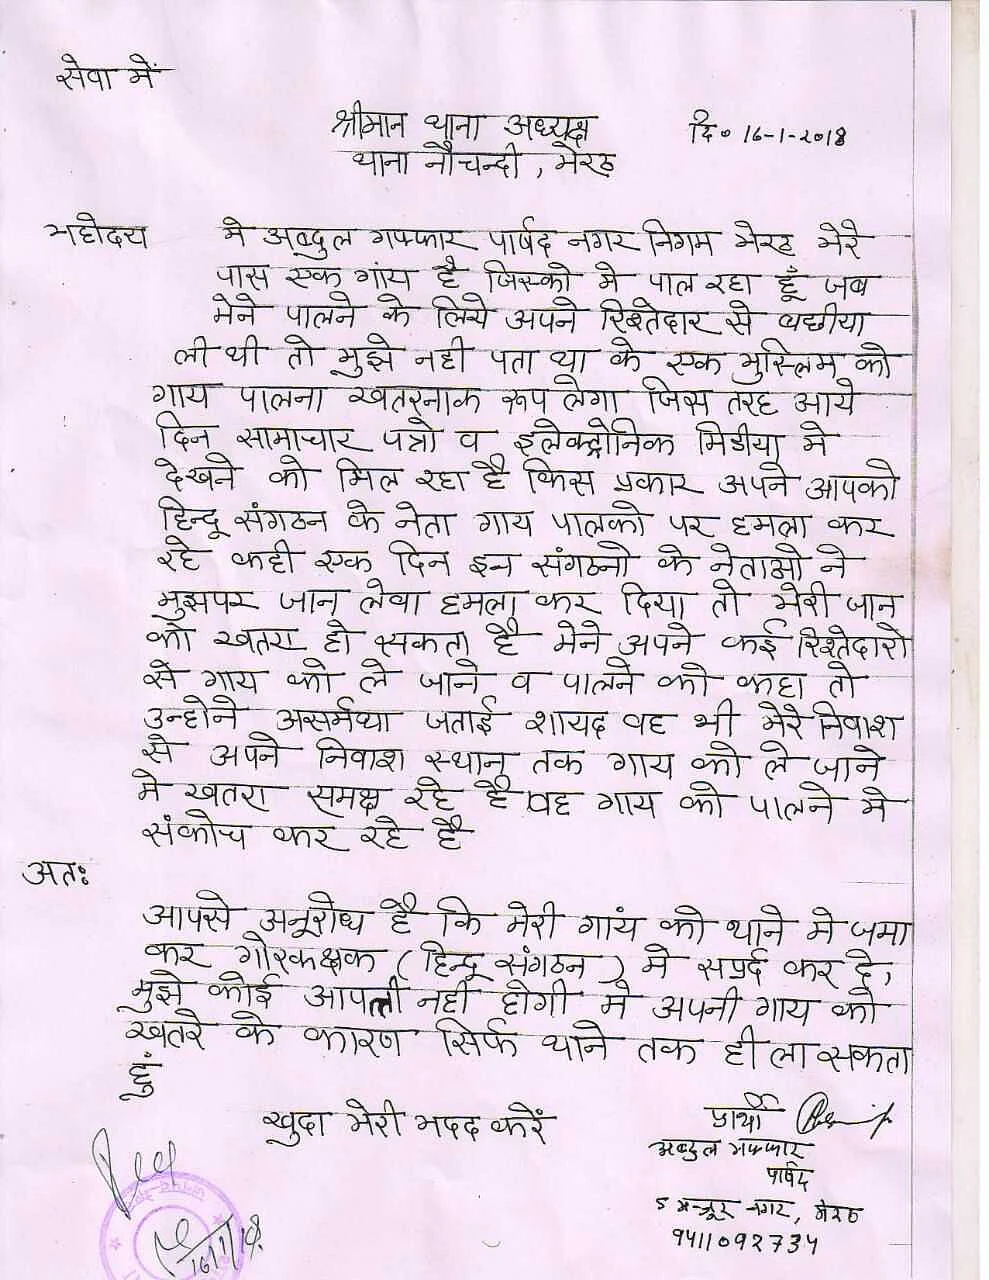 सेवा में
श्रीमान थाना अध्यक्ष
दि० 16-1-2018
थाना नौचन्दी, मेरठ
महोदय मे अब्दुल गफ्फार पार्षद नगर निगम मेरठ मेरे
पास एक गांय है जिस्को मे पाल रहा हूँ जब
मेने पालने के लिये अपने रिश्तेदार से बछीया
ली थी तो मुझे नही पता था के एक मुस्लिम को
गाय पालना खतरनाक रूप लेगा जिस तरह आये
दिन सामाचार पत्रो व इलेक्ट्रोनिक मिडीया मे
देखने को मिल रहा है किस प्रकार अपने आपको
हिन्दू संगठन के नेता गाय पालको पर हमला कर
रहे कही एक दिन इन संगठनो के नेताओ ने
मुझपर जान लेवा हमला कर दिया तो मेरी जान
को खतरा हो सकता है मेने अपने कई रिश्तेदारो
से गाय को ले जाने व पालने को कहा तो
उन्होने असर्मथा जताई शायद वह भी मेरे निवाश
से अपने निवाश स्थान तक गाय को ले जाने
मे खतरा समक्ष रहे है वह गाय को पालने मे
संकोच कर रहे है
अतः
आपसे अनूरोध है कि मेरी गांय को थाने मे जमा
कर गौरक्षक (हिन्दू संगठन) मे सर्पुद कर दे,
मुझे कोई आपत्ती नही होगी मे अपनी गाय को
खतरे के कारण सिर्फ थाने तक ही ला सकता
हुं
खुदा मेरी मदद करें
प्रार्थी
अब्दुल गफ्फार
पार्षद
5 मन्जूर नगर, मेरठ
9411092734
16/1/18